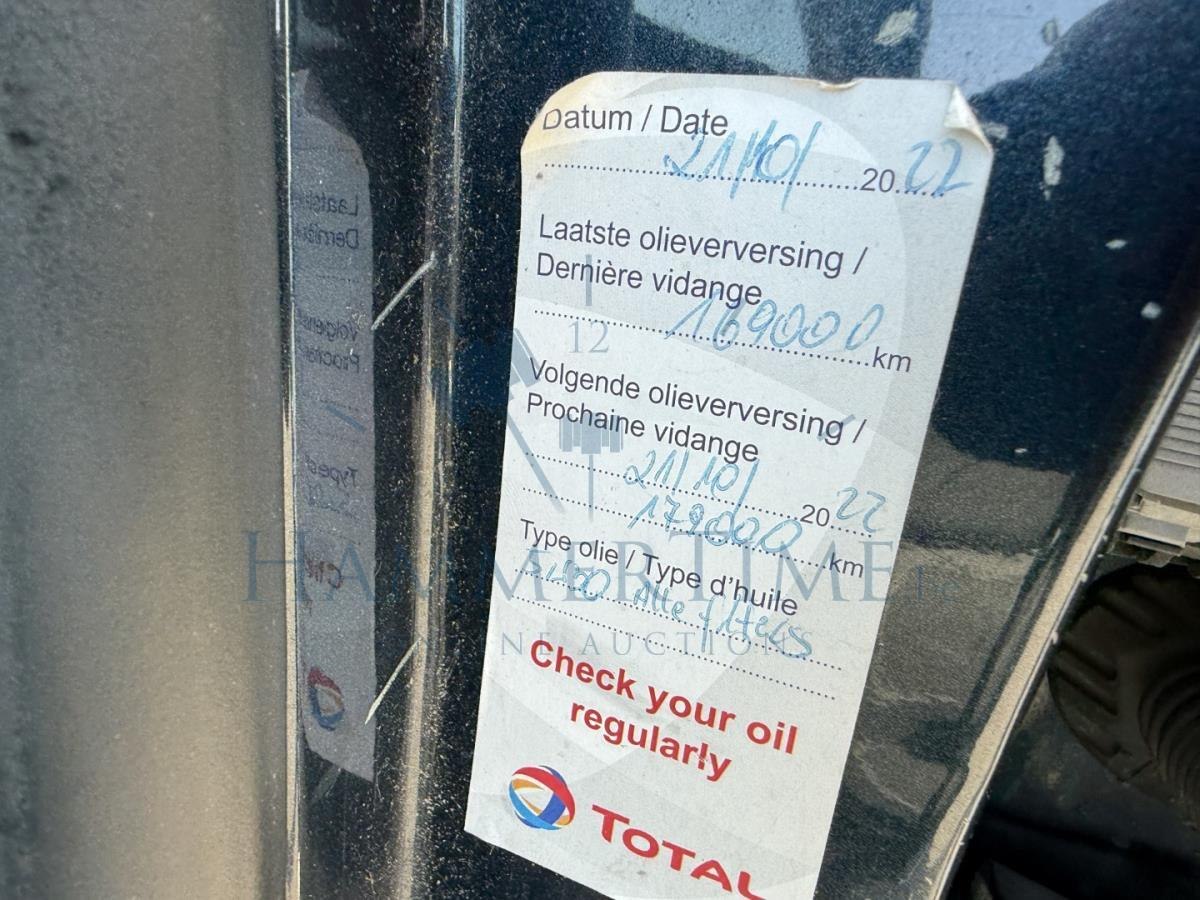 Datum / Date
21/10/ 2022
Laatste olieverversing /
Dernière vidange
169000 km
Volgende olieverversing /
Prochaine vidange
21/10/ 2022
179000 km
Type olie / Type d'huile
Alle filters
Check your oil
regularly
TOTAL
12
HAMMERTIME
ONLINE AUCTIONS